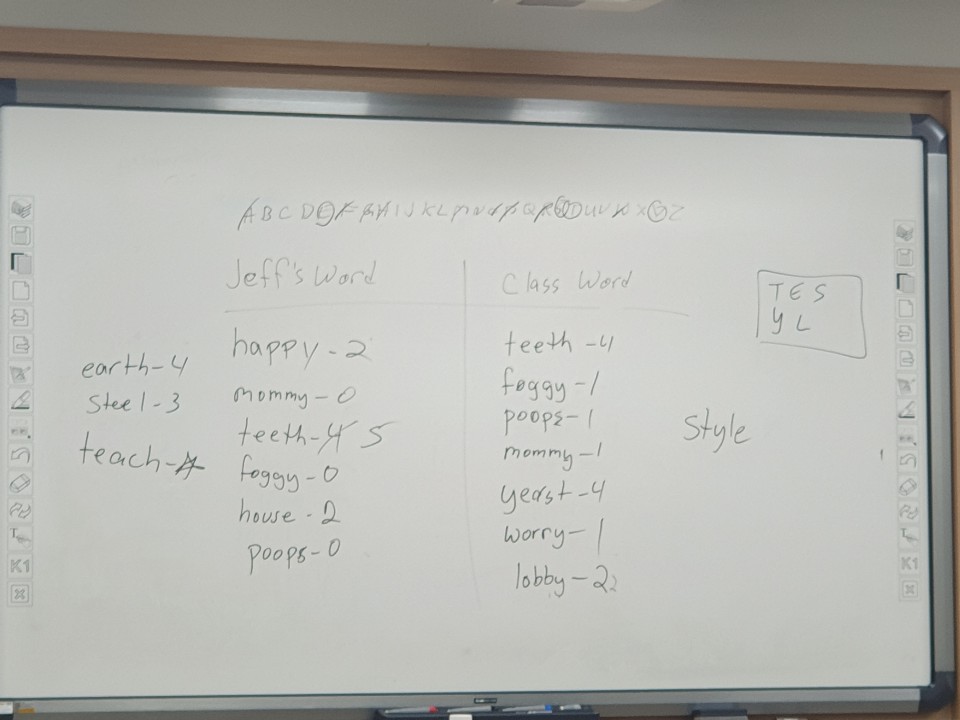 A B C D E F G H I J K L M N O P Q R S T U V W X Y Z
Jeff's Word
Class Word
T E S
Y L
happy - 2
mommy - 0
teeth - 4 5
foggy - 0
house - 2
poops - 0
earth - 4
Steel - 3
teach - 4
teeth - 4
foggy - 1
poops - 1
mommy - 1
yeast - 4
worry - 1
lobby - 2
Style
K1
K1